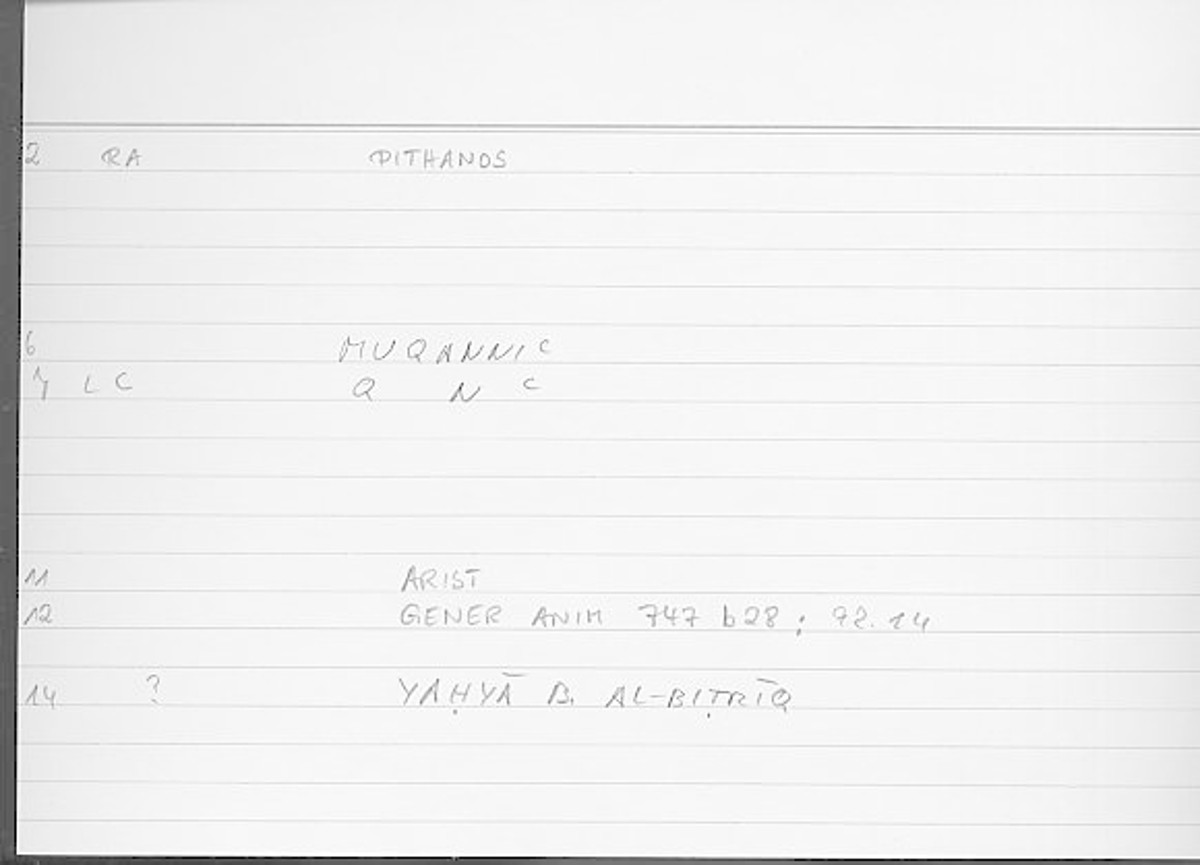 2 RA PITHANOS
6 MUQANNIC
7 LC Q N C
11 ARIST
12 GENER ANIM 747 b28 ; 92.14
14 ? YAḤYĀ B. AL-BIṬRĪQ